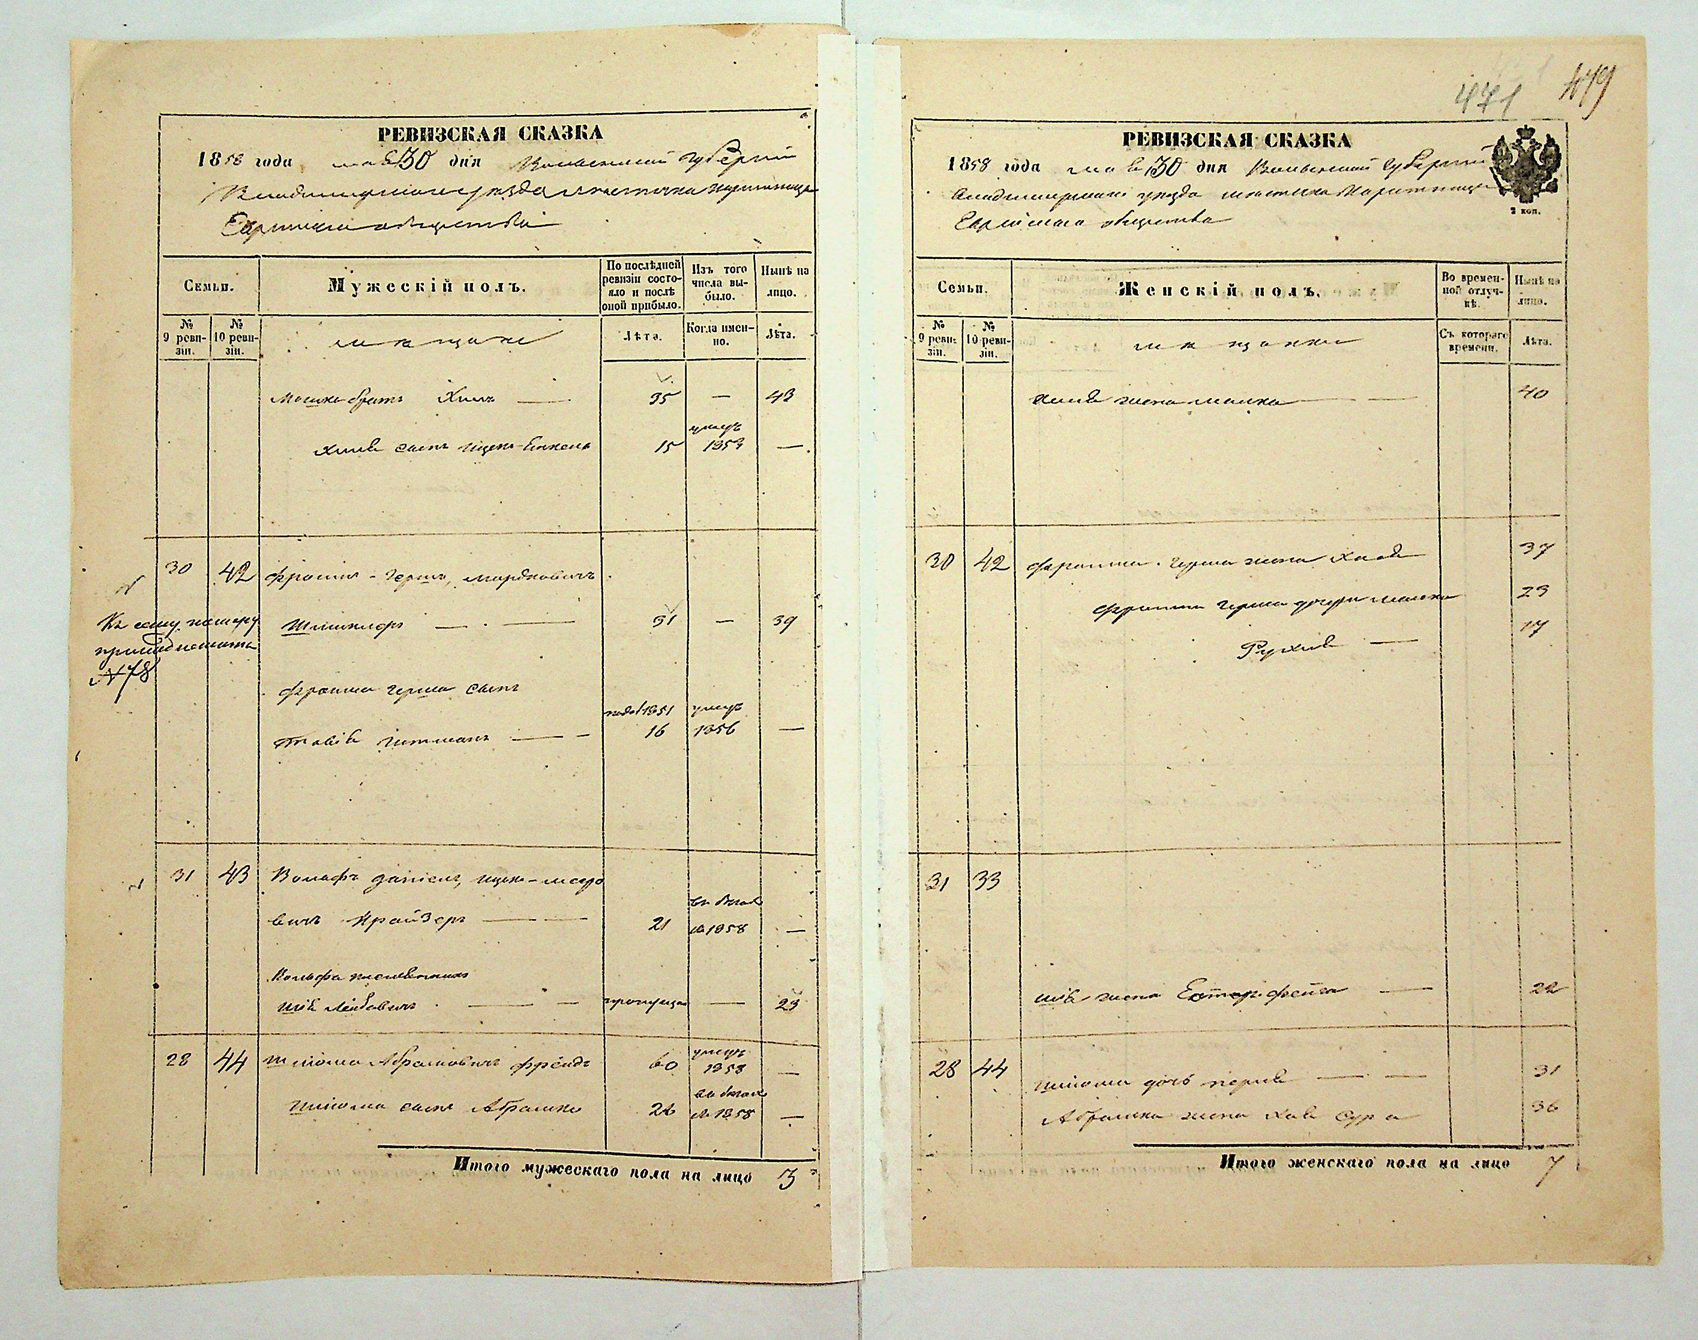 РЕВИЗСКАЯ СКАЗКА
1858 года мая 30 дня Волынской Губернии
Владимирского уезда местечка
Еврейского общества
Семьи.
Мужескій полъ.
По послѣдней ревизіи состояло и послѣ оной прибыло.
Изъ того числа выбыло.
Нынѣ на лицо.
№ 9 ревизіи.
№ 10 ревизіи.
мещане
Лѣта.
Когда именно.
Лѣта.
Мошка братъ Хаимъ — 35 — 43
сынъ Ицко-Янкель 15 умеръ 1853 —
30 42 Фроимъ-Герша, Мордковичъ
Къ сему номеру
№ 78
31 — 39
Фроима Герша сынъ
1851 умеръ
16 1856 —
31 43 Вольфъ Даніель, Ицко-Мееро
вичъ Крайзеръ — 21 1858 —
Вольфа племянникъ
Лейбовичъ — пропущен — 23
28 44 Шлома Абрамовичъ Фрейдъ 60 умеръ 1858 —
Шлома сынъ Абрамко 26 1858 —
Итого мужескаго пола на лицо 3
471 479
РЕВИЗСКАЯ СКАЗКА
1858 года мая 30 дня Волынской Губернии
Владимирского уезда местечка
Еврейского общества
2 коп.
Семьи.
Женскій полъ.
Во временной отлучкѣ.
Нынѣ на лицо.
№ 9 ревизіи.
№ 10 ревизіи.
мещанки
Съ котораго времени.
Лѣта.
Хаима жена Малка — 40
30 42 Фроима-Герша жена Хая 37
Фроима Герша дочери Малка 23
Рухля — 17
31 33
жена Естер-Фейга — 22
28 44 Шлома дочь Перля — 31
Абрамка жена Хая Сура 36
Итого женскаго пола на лицо 7